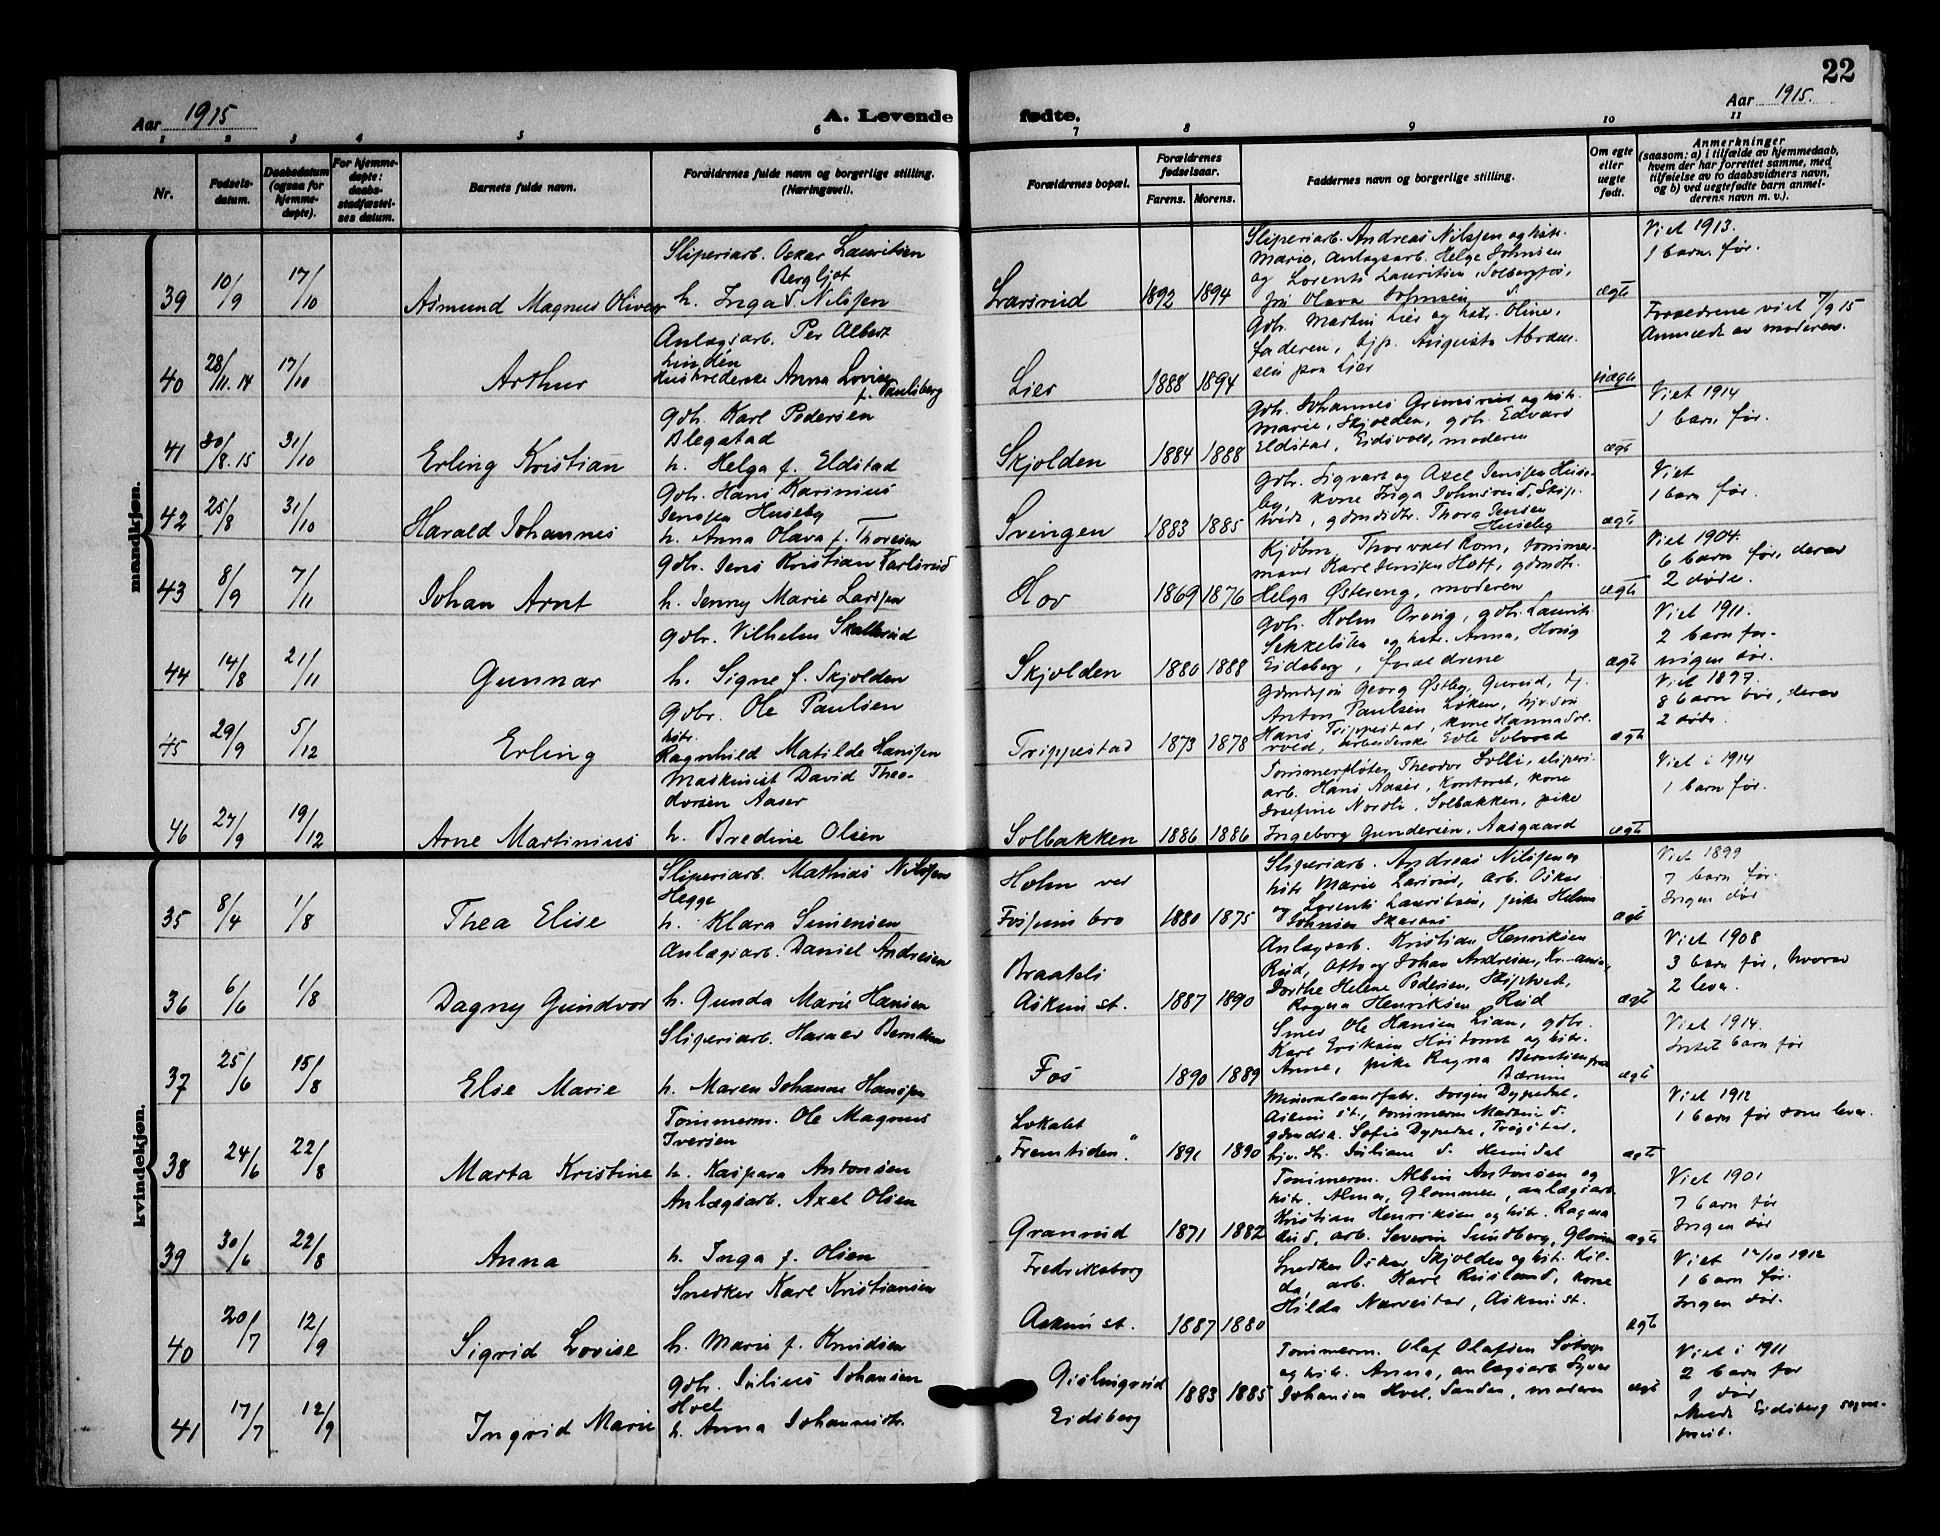 22
Aar 1915
A. Levende
fødte.
Aar 1915.
1 2 3 4 5 6 7 8 9 10 11
Nr.
Fødsels-
datum.
Daabsdatum
(ogsaa for
hjemme-
døpte).
For hjemme-
døpte:
daabs-
stadfæstel-
ses datum.
Barnets fulde navn.
Forældrenes fulde navn og borgerlige stilling.
(Næringsvei).
Forældrenes bopæl.
Forældrenes
fødselsaar.
Farens. Morens.
Faddernes navn og borgerlige stilling.
Om egte
eller
uegte
født.
Anmerkninger
(saasom: a) i tilfælde av hjemmedaab,
hvem der har forrettet samme, med
tilføielse av to daabsvidners navn,
og b) ved uegtefødte barn anmel-
derens navn m. v.).
mandkjøn.
39 10/9 17/10 Asmund Magnus Oliver
Sliperiarb. Oskar Lauritsen
Bergljot
h. Inga Nilsen
1892 1894
Sliperiarb. Andreas Nilsen og hstr.
Marie, Anlægsarb. Helge Johnsen
og Lorents Lauritsen, Solbergfos,
frk Olava Johnsen
ægte
Viet 1913.
1 barn før.
40 28/11.14 17/10 Arthur
Anlægsarb. Per Albert
Lindén
Husholderske Anna Lovise
f. Paulsberg
Lier 1888 1894
Gbr. Martin Lier og hstr. Oline,
faderen, tjp. Augusta Abram-
sen fra Lier
uægte
Forældrene viet 7/9 15
Anmeldt av moderen.
41 30/8.15 31/10 Erling Kristian
Gbr. Karl Pedersen
Blegstad
h. Helga f. Eldstad
Skjolden 1884 1888
Gbr. Johannes Grimsrud og hstr.
Marie, Skjolden, gbr. Edvard
Eldstad, Eidsvold, moderen
ægte
Viet 1914
1 barn før.
42 25/8 31/10 Harald Johannes
Gbr. Hans Karinius
Jensen Huseby
h. Anna Olava f. Thoresen
Svingen 1883 1885
Gbr. Sigvart og Axel Jensen Huse-
by, kone Inga Johnsrud, Skip-
tvedt, gdmdtr. Thora Jensen
Huseby
ægte
Viet
1 barn før.
43 8/9 7/11 Johan Arnt
Gbr. Jens Kristian Karlsrud
h. Jenny Marie Larsen
Hov 1869 1876
Kjøbm. Thorvald Rom, tømmer-
mand Karl Jensen Hoff, gdmdtr.
Helga Østereng, moderen
ægte
Viet 1904.
6 barn før, derav
2 døde.
44 14/8 21/11 Gunnar
Gbr. Vilhelm Skallerud
h. Signe f. Skjolden
Skjolden 1880 1888
Gbr. Holm Orvig, gbr. Laurits
Sekkelsten og hstr. Anna, Hovig
Eidsberg, forældrene
ægte
Viet 1911.
2 barn før.
ingen død.
45 29/9 5/12 Erling
Gbr. Ole Paulsen
hstr.
Ragnhild Matilde Hansen
Trippestad 1873 1878
Anton Paulsen Løken,
Hans Trippestad, kone Hanna Sol-
vold, arbeiderske Edle Solvold
ægte
Viet 1897.
8 barn før, derav
2 døde.
46 27/9 19/12 Arne Martinius
Maskinist David Theo-
dorsen Aaser
h. Bredine Olsen
Solbakken 1886 1886
Tømmerfløter Theodor Solli, sliperi-
arb. Hans Aaser, Kontoret, kone
Josefine Nordli, Solbakken, pike
Ingeborg Gundersen, Aasgaard
ægte
Viet i 1914
1 barn før.
kvindekjøn.
35 8/4 1/8 Thea Elise
Sliperiarb. Mathias Nilsen
Hegge
h. Klara Simensen
Holm ved
Fossum bro 1880 1875
Sliperiarb. Andreas Nilsen og
hstr Marie Larsrud, arb. Oskar
og Lorents Lauritsen, pike Helma
Johnsen
ægte
Viet 1899
7 barn før.
Ingen død
36 6/6 1/8 Dagny Gundvor
Anlægsarb. Daniel Andresen
h. Gunda Marie Hansen
Braateli
Askim st. 1887 1890
Anlægsarb. Kristian Henriksen
Rud, Otto og Johan Andresen, Kr.ania,
Dorthe Helene Pedersen, Skiptvedt,
Ragna Henriksen Rud
ægte
Viet 1908
3 barn før, hvorav
2 lever.
37 25/6 15/8 Else Marie
Sliperiarb. Harald Berntsen
h. Maren Johanne Hansen
Fos 1890 1889
Smed Ole Hansen Lian, gbr.
Karl Eriksen Høitomt og hstr.
Anne, pike Ragna Berntsen fra
Bærum
ægte
Viet 1914.
Intet barn før
38 24/6 22/8 Marta Kristine
Tømmerm. Ole Magnus
Iversen
h. Kaspara Antonsen
Lokalet
"Fremtiden". 1891 1890
Askim st., tømmerm Martin
ægte
Viet 1912
1 barn før som lever.
39 30/6 22/8 Anna
Anlægsarb. Axel Olsen
h. Inga f. Olsen
Granrud 1871 1882
Tømmerm. Albin Antonsen og
hstr. Alma, Glommen, anlægsarb.
Kristian Henriksen og hstr. Ragna
Rud, arb. Severin Sundberg, Glommen
ægte
Viet 1901
7 barn før
Ingen død
40 20/7 12/9 Sigrid Lovise
Snedker Karl Kristiansen
h. Marie f. Knudsen
Fredriksborg
Askim st. 1887 1880
Snedker Oskar Skjolden og hst. Hil-
da, arb. Karl Rusland, kone
Hilda Narvestad, Askim st.
ægte
Viet 12/10 1912
1 barn før.
Ingen død.
41 17/7 12/9 Ingrid Marie
Gbr. Julius Johansen
Hvel
h. Anna Johannesdtr.
Gislingsrud
Eidsberg 1883 1885
Tømmerm. Olaf Olafsen Søtorp
og hstr. Anna, anlægsarb Syver
Johansen Hvel, Sandem, moderen
ægte
Viet i 1911
2 barn før
1 død
Meldt Eidsberg sogne-
prest.